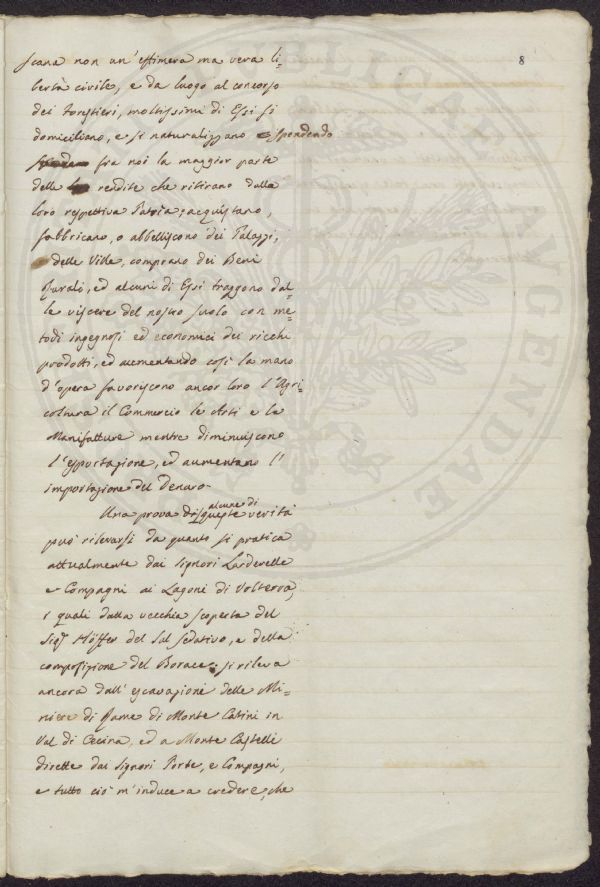 8
scana non un' effimera ma vera li-
bertà civile, e da luogo al concorso
dei Forestieri, moltissimi di Essi si
domiciliano, e si naturalizzano spendendo
fra noi la maggior parte
delle rendite che ritirano dalla
loro respettiva Patria; acquistano,
fabbricano, o abbelliscono dei Palazzi,
delle Ville, comprano dei Beni
Rurali, ed alcuni di Essi traggono dal-
le viscere del nostro suolo con me-
todi ingegnosi ed economici dei ricchi
prodotti, ed aumentando così la mano
d'opera favoriscono ancor loro l'Agri-
coltura il Commercio le Arti e le
Manifatture mentre diminuiscono
l'esportazione, ed aumentano l'
importazione del Denaro.
Una prova di alcune di queste verità
può rilevarsi da quanto si pratica
attualmente dai Signori Larderelle
e Compagni ai Lagoni di Volterra,
i quali dalla vecchia scoperta del
Sigr Höffer del Sal sedativo, e della
composizione del Borace; si rileva
ancora dall' escavazione delle Mi-
niere di Rame di Monte Catini in
Val di Cecina, ed a Monte Castelli
dirette dai Signori Porte, e Compagni,
e tutto ciò m'induce a credere, che
PUBLICAE
AVGENDAE